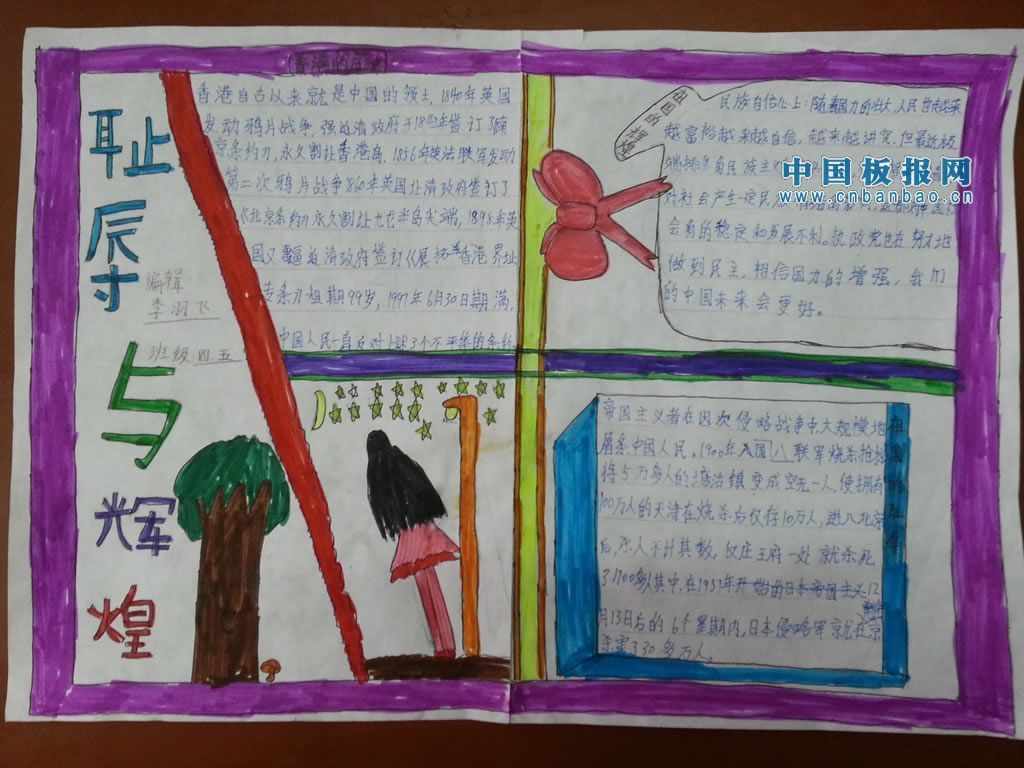 耻辱与辉煌
编辑
李羽飞
班级四.五
香港的历史
香港自古以来就是中国的领土，1840年英国
发动鸦片战争，强迫清政府于1842年签订了《南
京条约》，永久割让香港岛，1856年英法联军发动
第二次鸦片战争1860年英国让清政府签订了
《北京条约》永久割让九龙半岛尖端，1898年英
国又逼迫清政府签订《展拓香港界址
专条》租期99岁，1997年6月30日期满，
中国人民一直反对上述3个不平等的条约
祖国的辉煌
民族自信心上：随着国力的壮大，人民也越来
越富裕越来越自信，越来越讲究，但最近极
端
民族主义
对社会产生一定
会的稳定和发展不利。执政党也在努力地
做到民主，相信国力的增强，我们
的中国未来会更好。
中国板报网
www.cnbanbao.cn
祖国的耻辱
帝国主义者在因次侵略战争中大规模地
屠杀中国人民。1900年八国联军烧杀抢掠
将5万多人的塘沽镇变成空无一人，使拥有
100万人的天津在烧杀后仅存10万人，进入北京
后，杀人不计其数，仅庄王府一处就杀死
了1700多人其中.在1937年开始的日本帝国主义12
月13日后的6个星期内，日本侵略军就在南京
杀害了30多万人。